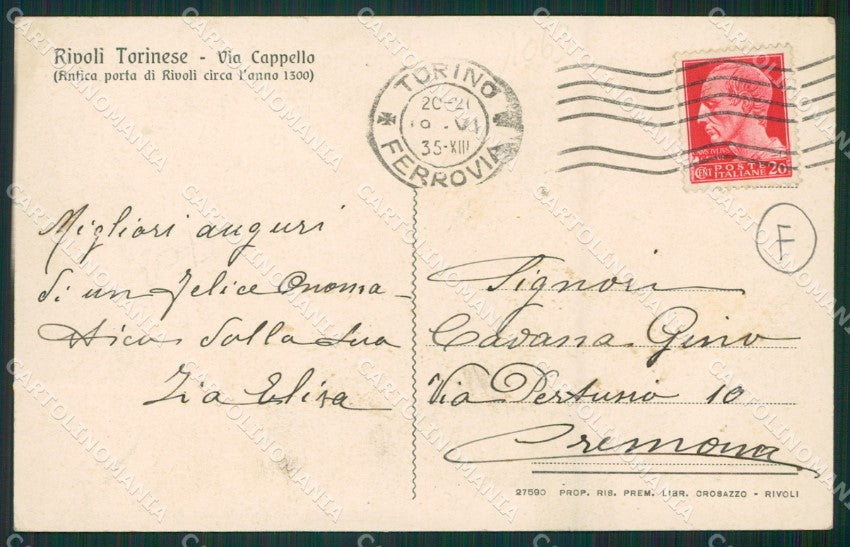 Rivoli Torinese - Via Cappello
(Antica porta di Rivoli circa l'anno 1300)
TORINO
20-21
VI
35-XIII
FERROVIA
POSTE
CENT ITALIANE 20
F
Migliori auguri
di un felice Onoma-
stico dalla sua
Zia Elisa
Signori
Cavana Gino
Via Pertusio 10
Cremona
27590 PROP. RIS. PREM. LIBR. CROSAZZO - RIVOLI
CARTOLINOMANIA